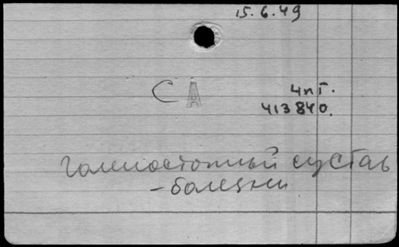 15.6.49
СА
4пГ.
413840.
голеностопный сустав
-болезни